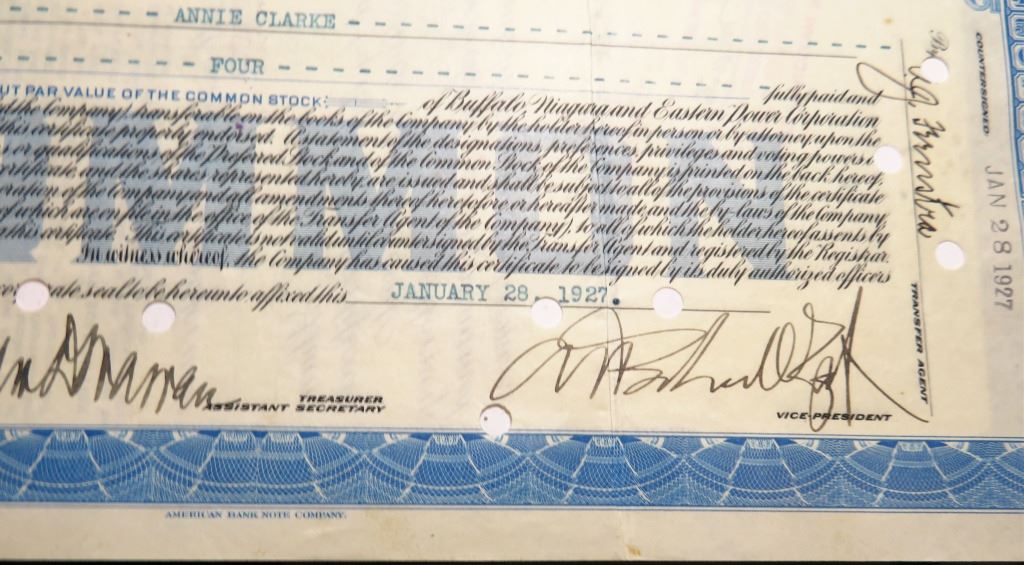 ANNIE CLARKE
FOUR
UT PAR VALUE OF THE COMMON STOCK: of Buffalo, Niagara and Eastern Power Corporation fully paid and
the Company transferable on the books of the Company by the holder hereof in person or by attorney upon the
this certificate properly endorsed. A statement of the designations, preferences, privileges and voting powers
or qualifications of the Preferred Stock and of the Common Stock of the Company is printed on the back hereof.
certificate and the shares represented hereby, are issued and shall be subject to all of the provisions of the certificate
of the Company and the amendments thereof heretofore or hereafter made and the by-laws of the Company
of which are on file in the office of the Transfer Agent of the Company), to all of which the holder hereof assents by
this certificate. This certificate is not valid until countersigned by the Transfer Agent and registered by the Registrar.
In witness whereof the Company has caused this certificate to be signed by its duly authorized officers
seal to be hereunto affixed this JANUARY 28, 1927.
COMMON
TREASURER
ASSISTANT SECRETARY
VICE-PRESIDENT
AMERICAN BANK NOTE COMPANY.
By
TRANSFER AGENT
COUNTERSIGNED
JAN 28 1927